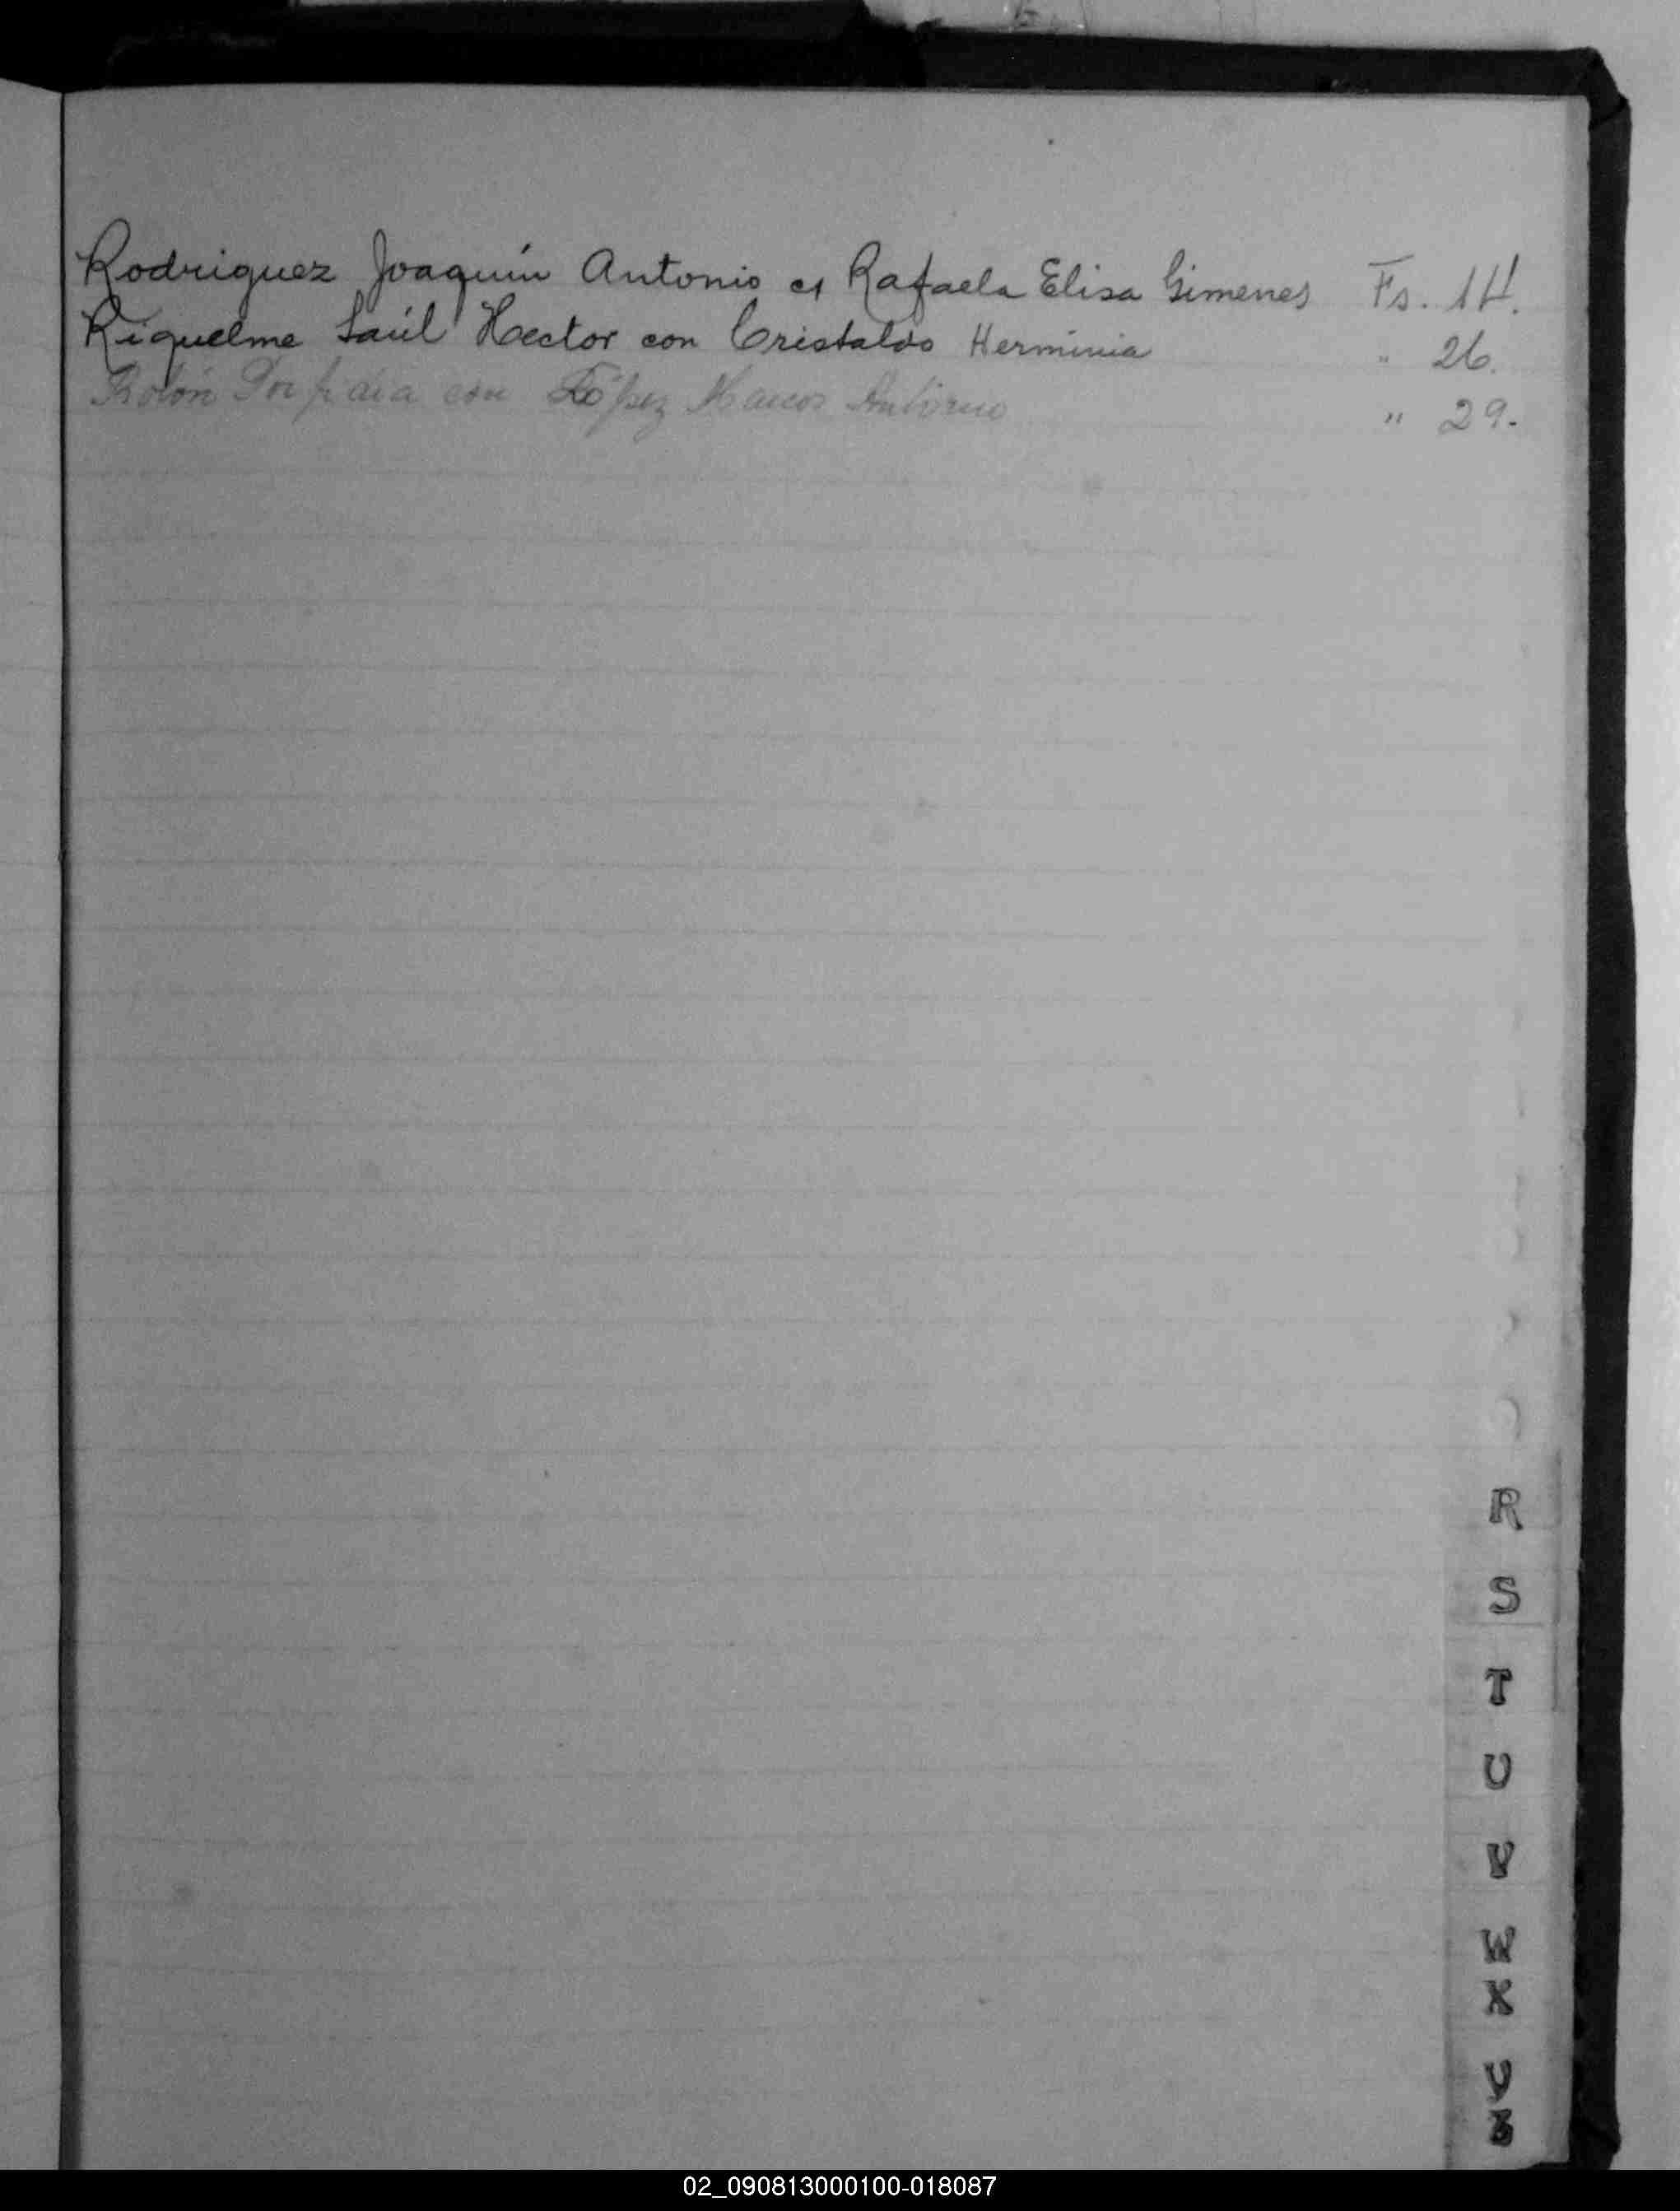 Rodriguez Joaquín Antonio c/ Rafaela Elisa Gimenes Fs. 14.
Riquelme Saúl Hector con Cristaldo Herminia " 26.
Rolón Porfidia con López Marcos Antonio " 29.
R
S
T
U
V
W
X
Y
Z
02_090813000100-018087